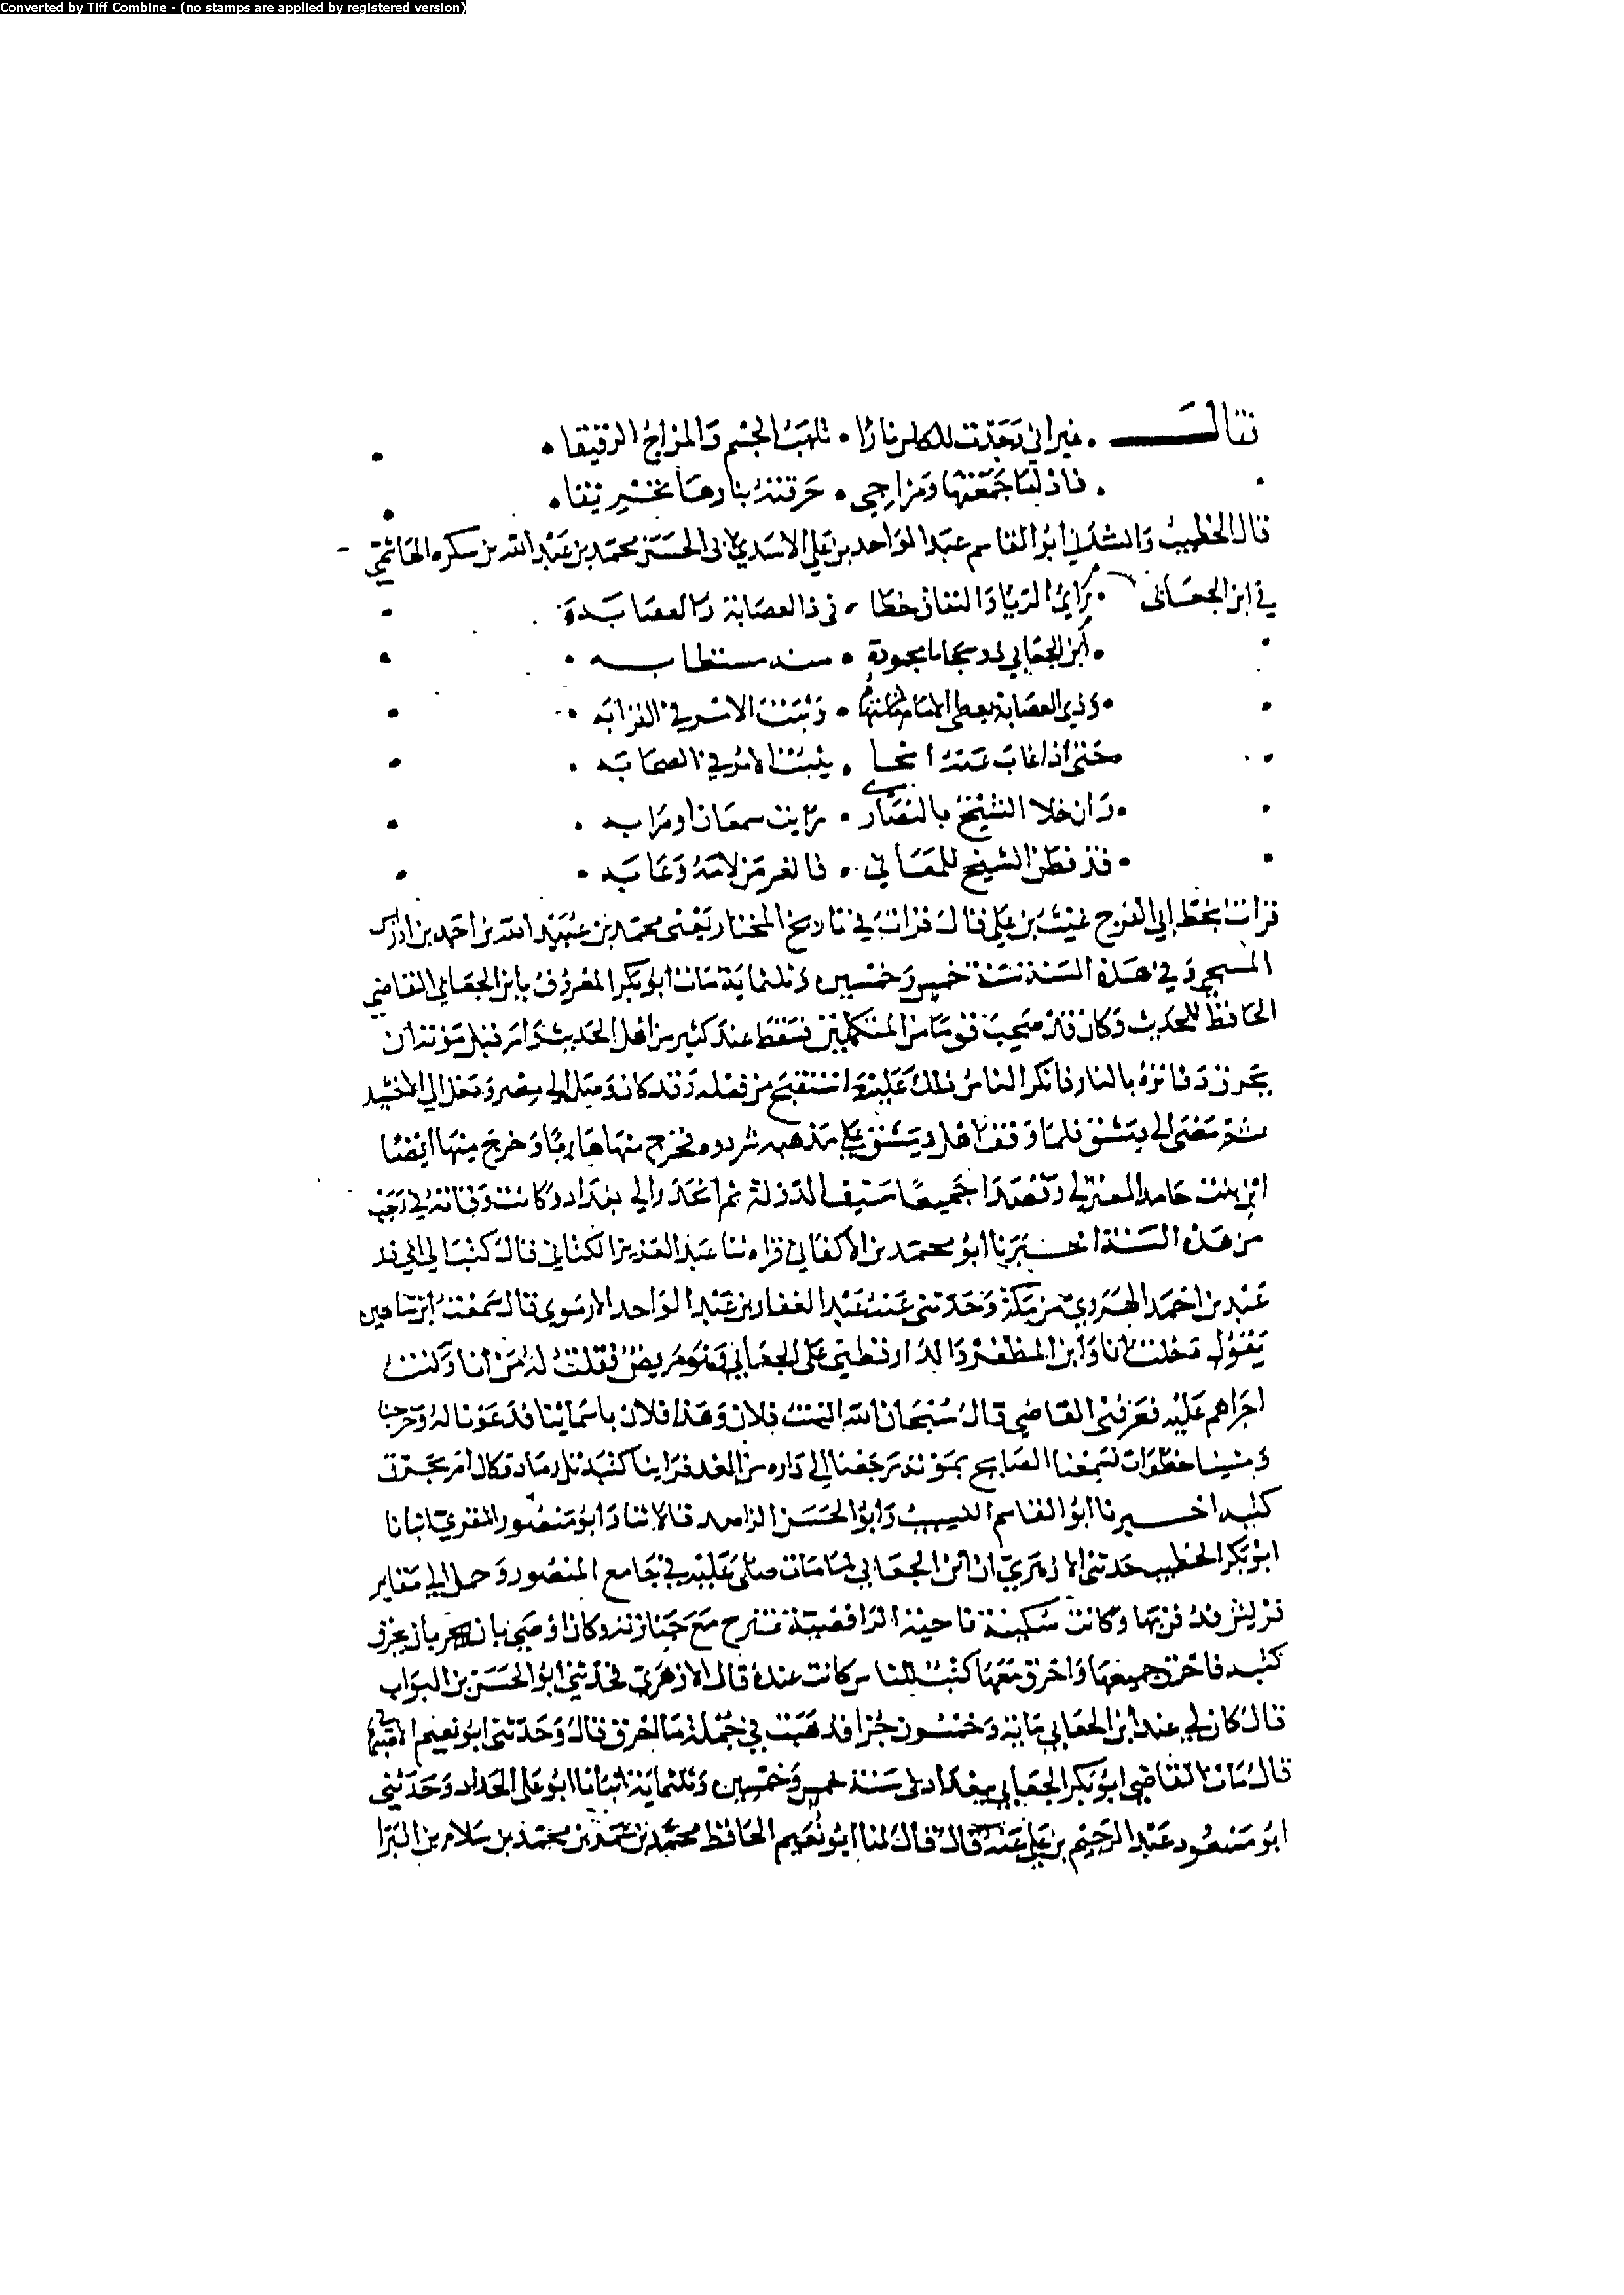 Converted by Tiff Combine - (no stamps are applied by registered version)
فقال . غير اني وجدت للكاس نارا . تلهب الجسم والمزاج الرقيقا .
. فاذا ما جمعتها ومزاجي . حرقته بنارها
قال الخطيب وانشدني ابو القاسم عبد الواحد بن علي الاسدي لابي الحسن محمد بن عبد الله بن سكره الهاشمي
في ابن الجعابي . الريا والنفاق خطا . في ذا العصابة وا العصابه
. ابن الجعابي . مستطابه .
. وذي العصابة الامامة . وثبت الامر في القرابه .
. حتى اذا غاب عنه انحا . يثبت الامر في الصحابه .
. وان خلا الشيخ بالنصارى . رايت سمعان او مرابه .
. قد فطن الشيخ للمعاني . فالغر من لامه وعابه .
قرات بخط ابي الفرج غيث بن علي قال قرات في تاريخ المختار يعني محمد بن عبيد الله بن احمد بن ادريس
المسبحي وفي هذه السنة سنة خمس وخمسين وثلثماية مات ابو بكر المعروف بابن الجعابي القاضي
الحافظ للحديث وكان قد صحب قوما من المتكلمين فسقط عند كثير من اهل الحديث وامر قبل موته ان
يحرق دفاتره بالنار فانكر الناس ذلك عليه واستقبح من فعله وقد كان وصل الى مصر ودخل الى الاخشيد
ثم مضى الى دمشق فلما وقف اهل دمشق على مذهبه شردوه فخرج منها هاربا وخرج منها ايضا
ابن بنت حامد المعتزلي وقصدا جميعا سيف الدولة ثم انحدر الى بغداد وكانت وفاته في رجب
من هذه السنة اخبرنا ابو محمد بن الاكفاني قراه ثنا عبد العزيز الكتاني قال كتب الي ابي ذر
عبد بن احمد الهروي من مكة وحدثني عنه عبد الغفار بن عبد الواحد الارموي قال سمعت ابن شاهين
يقول دخلت انا وابن المظفر والدارقطني على الجعابي وهو مريض فقلت له من انا وكنت
اجراهم عليه فعرفني القاضي قال سبحان الله الست فلان وهذا فلان باسمائنا فدعونا له وخرجنا
ومشينا خطوات فسمعنا الصائح بموته ثم رجعنا الى داره من الغد فراينا كتبه تل رماد وكان امر بحرق
كتبه اخبرنا ابو القاسم النسيب وابو الحسن الزاهد قالا ثنا وابو منصور المقري انبانا
ابو بكر الخطيب حدثني الازهري ان ابن الجعابي لما مات صلى عليه في جامع المنصور وحمل الى مقابر
قريش فدفن بها وكانت سكينة نايحة الرافضة تنوح مع جنازته وكان اوصى بان يحرق
كتبه فاحرق جميعها واحرق معها كتب للناس كانت عنده قال الازهري فحدثني ابو الحسن بن البواب
قال كان لي عند ابن الجعابي ماية وخمسون جزا فذهبت في جملة ما احرق قال وحدثني ابو نعيم
قال مات القاضي ابو بكر الجعابي ببغداد في سنة خمس وخمسين وثلثماية انبانا ابو علي الحداد وحدثني
ابو مسعود عبد الرحيم بن علي عنه قال قال لنا ابو نعيم الحافظ محمد بن عمر بن محمد بن سلام بن البرا